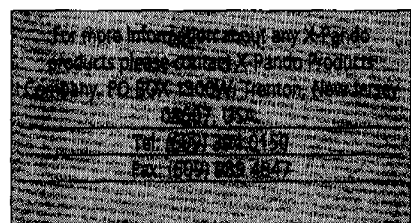 For more information about any X-Pando
products please contact X-Pando Products
Company, PO BOX Trenton, New Jersey
USA.
Tel: (609)
Fax: (609)